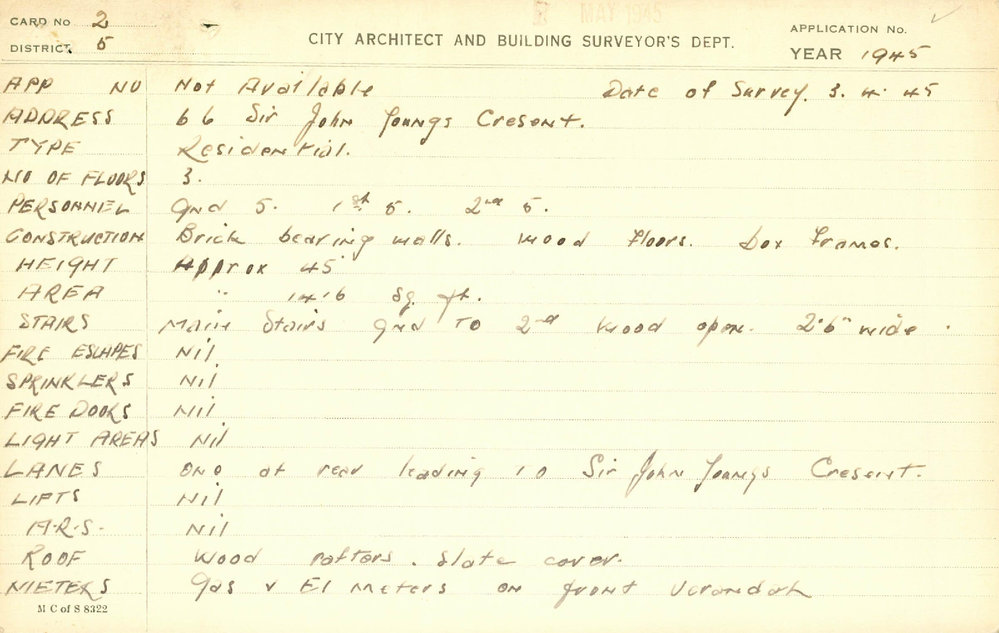 CARD No 2
DISTRICT 5
CITY ARCHITECT AND BUILDING SURVEYOR'S DEPT.
MAY 1945
APPLICATION No.
YEAR 1945
APP NO Not Available Date of Survey. 3. 4. 45
ADDRESS 66 Sir John Youngs Cresent.
TYPE Residential.
NO OF FLOORS 3.
PERSONNEL Gnd 5. 1st 5. 2nd 5.
CONSTRUCTION Brick bearing walls. Wood Floors. Box Frames.
HEIGHT Approx 45'
AREA " 1416 Sq. ft.
STAIRS Main Stairs Gnd To 2nd Wood open. 2'6" wide.
FIRE ESCAPES Nil
SPRINKLERS Nil
FIRE DOORS Nil
LIGHT AREAS Nil
LANES One at rear leading to Sir John Youngs Cresent.
LIFTS Nil
A.R.S. Nil
ROOF Wood rafters. Slate cover.
METERS Gas & El Meters on front Verandah
M C of S 8322